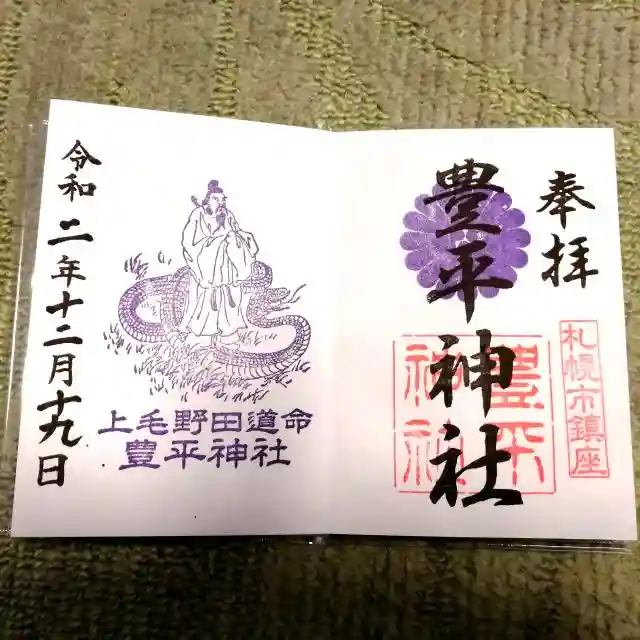 奉拝
豊平神社
札幌市鎮座
豊平
神社
上毛野田道命
豊平神社
令和二年十二月十九日